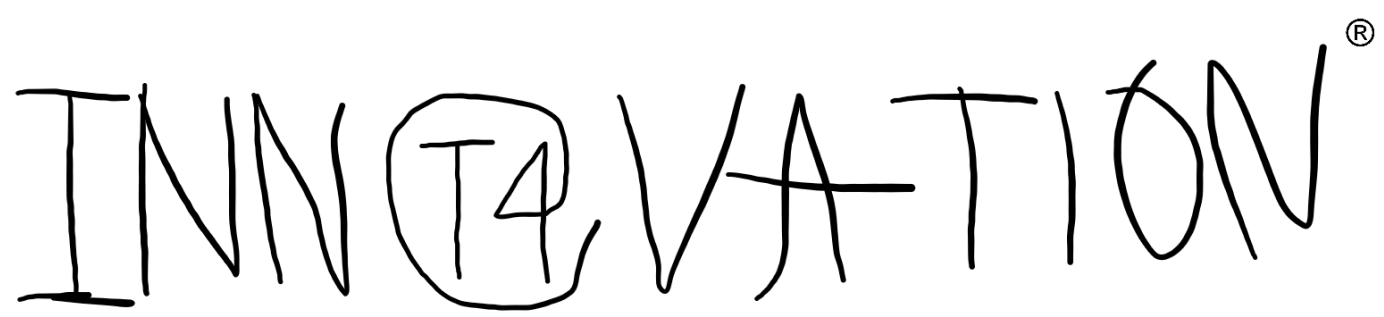 INNT4VATION®